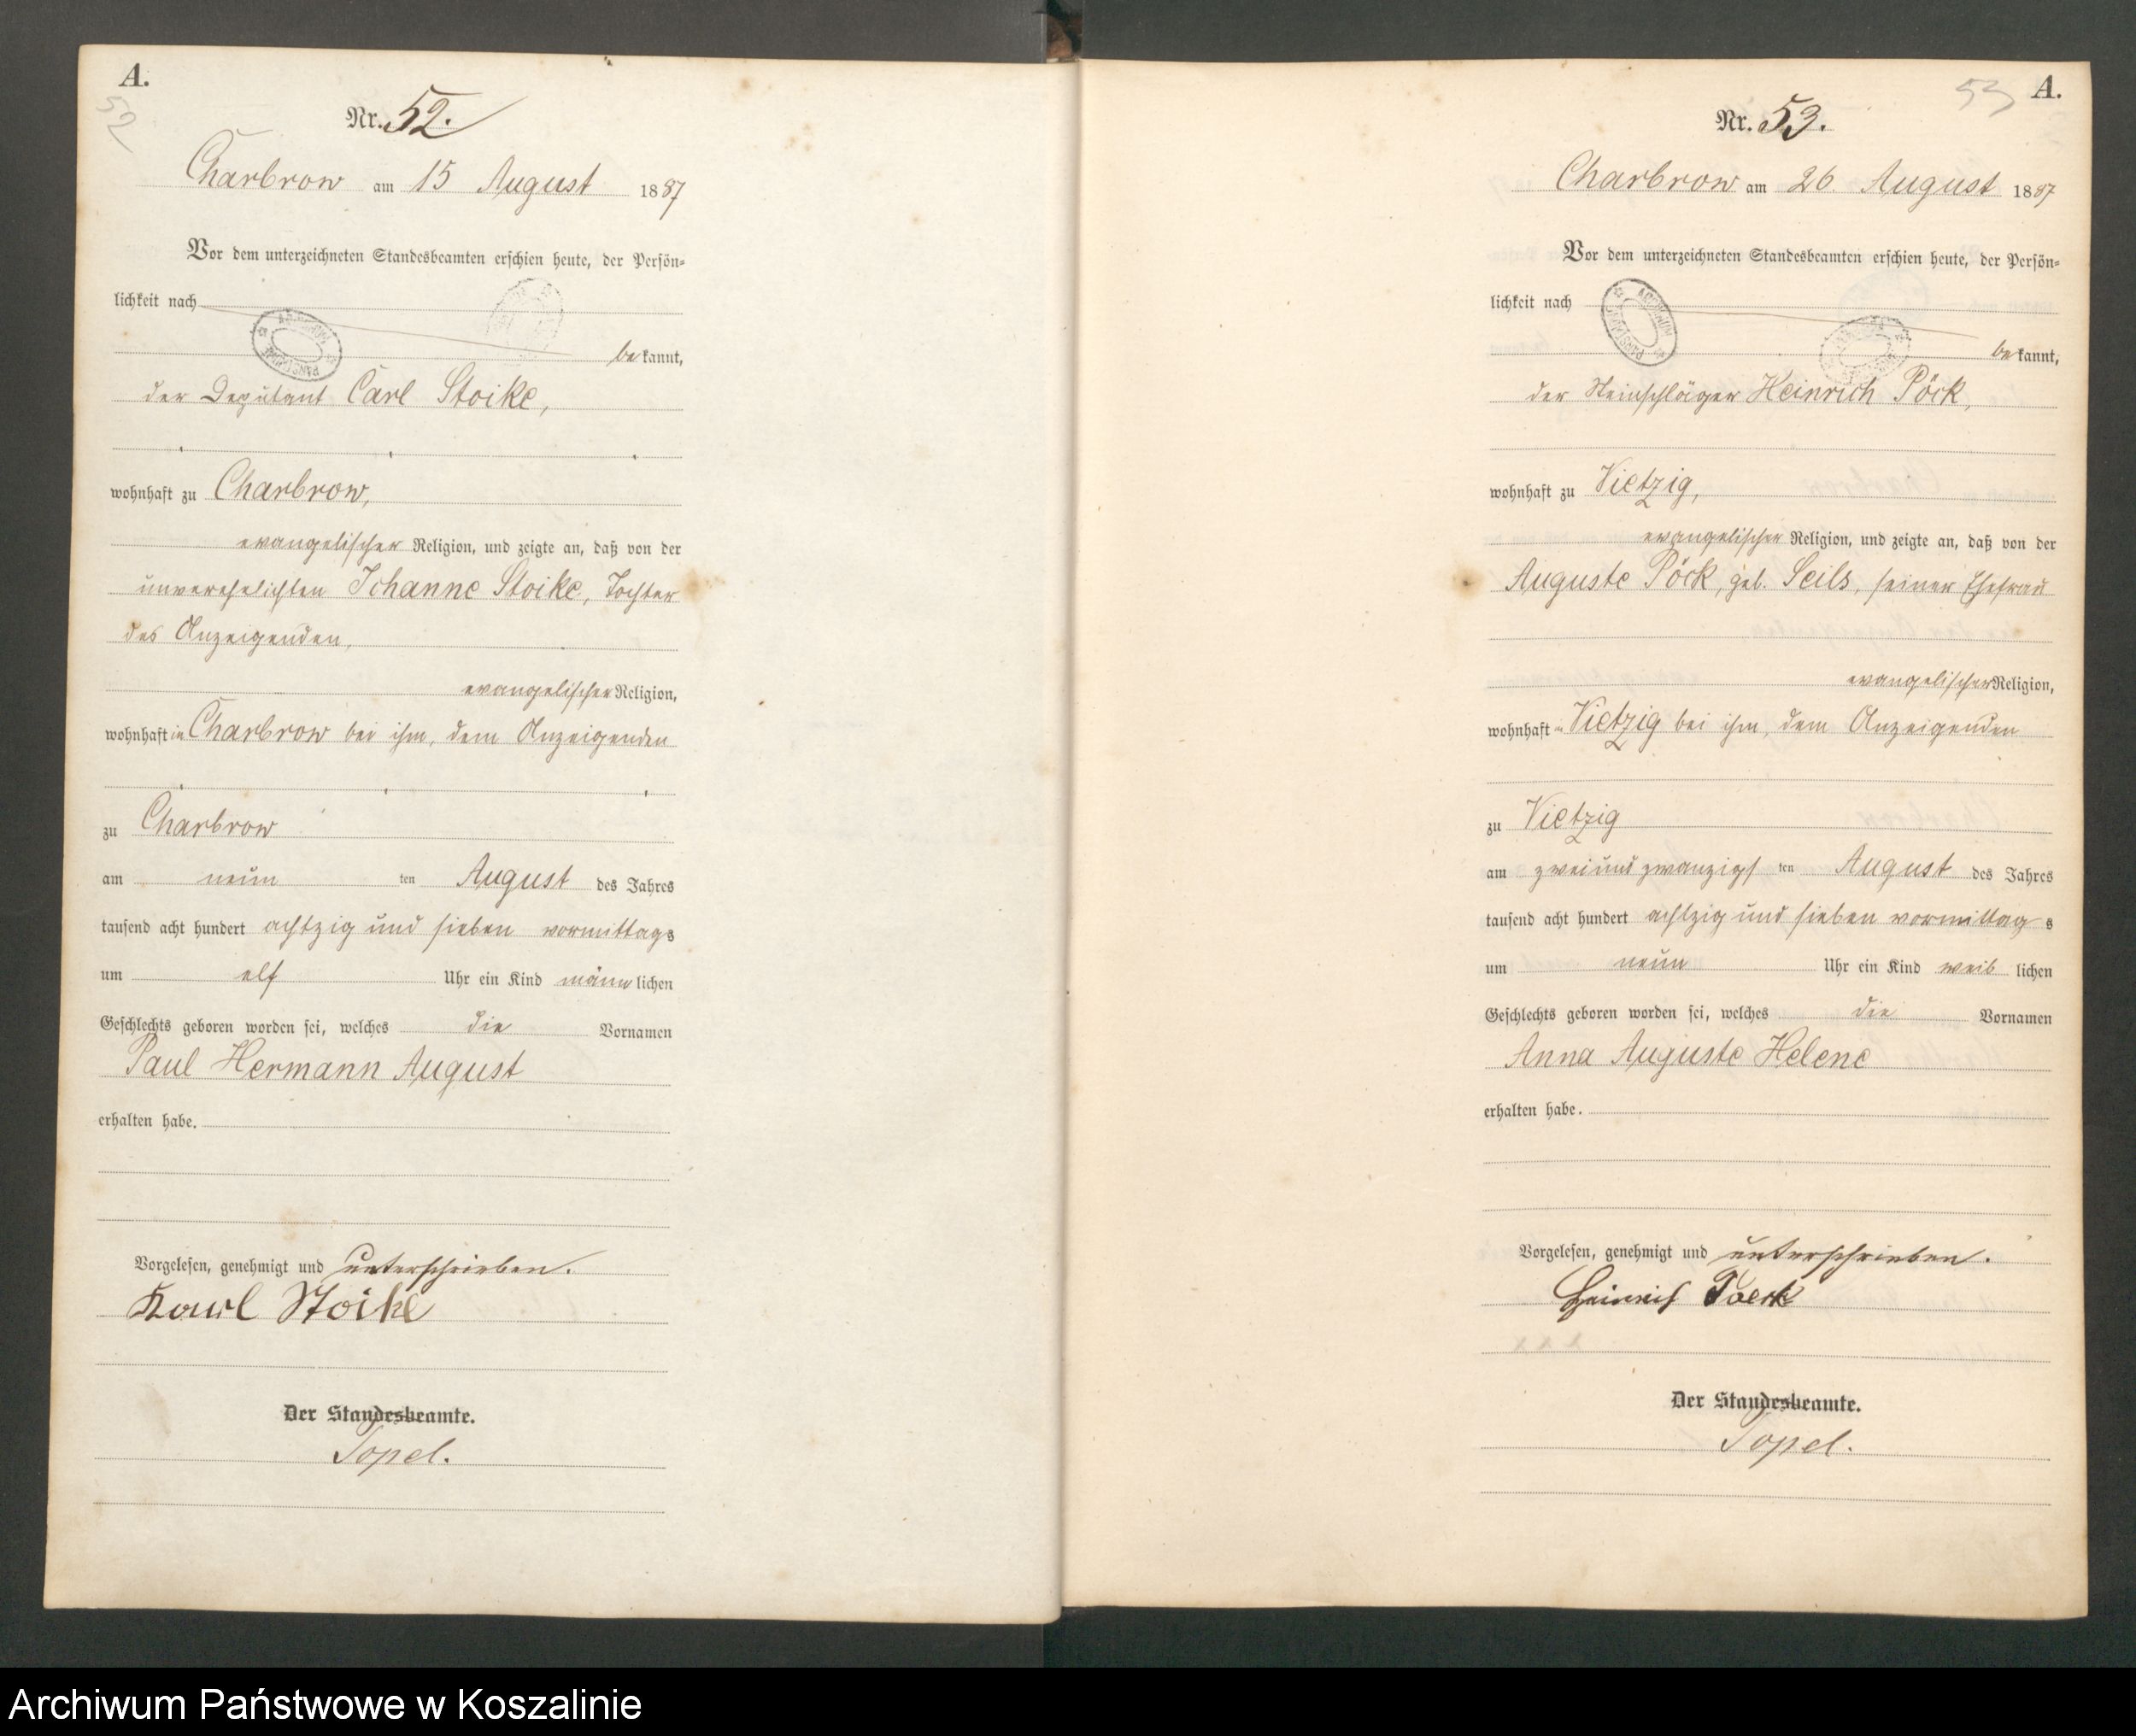 A.
52
Nr. 52.
Charbrow am 15 August 1887
Vor dem unterzeichneten Standesbeamten erschien heute, der Persön=
lichkeit nach
bekannt,
der Deputant Carl Stoike,
wohnhaft zu Charbrow,
evangelischer Religion, und zeigte an, daß von der
unverehelichten Johanne Stoike, Tochter
des Anzeigenden,
evangelischer Religion,
wohnhaft in Charbrow bei ihm, dem Anzeigenden
zu Charbrow
am neun ten August des Jahres
tausend acht hundert achtzig und sieben vormittags
um elf Uhr ein Kind männlichen
Geschlechts geboren worden sei, welches die Vornamen
Paul Hermann August
erhalten habe.
Vorgelesen, genehmigt und unterschrieben.
Karl Stoike
Der Standesbeamte.
Topel.
A.
53
Nr. 53.
Charbrow am 26 August 1887
Vor dem unterzeichneten Standesbeamten erschien heute, der Persön=
lichkeit nach
bekannt,
der Steinschläger Heinrich Pöck,
wohnhaft zu Vietzig,
evangelischer Religion, und zeigte an, daß von der
Auguste Pöck, geb. Seils, seiner Ehefrau
evangelischer Religion,
wohnhaft in Vietzig bei ihm, dem Anzeigenden
zu Vietzig
am zweiundzwanzigsten August des Jahres
tausend acht hundert achtzig und sieben vormittags
um neun Uhr ein Kind weiblichen
Geschlechts geboren worden sei, welches die Vornamen
Anna Auguste Helene
erhalten habe.
Vorgelesen, genehmigt und unterschrieben.
Heinrich Poeck
Der Standesbeamte.
Topel.
Archiwum Państwowe w Koszalinie